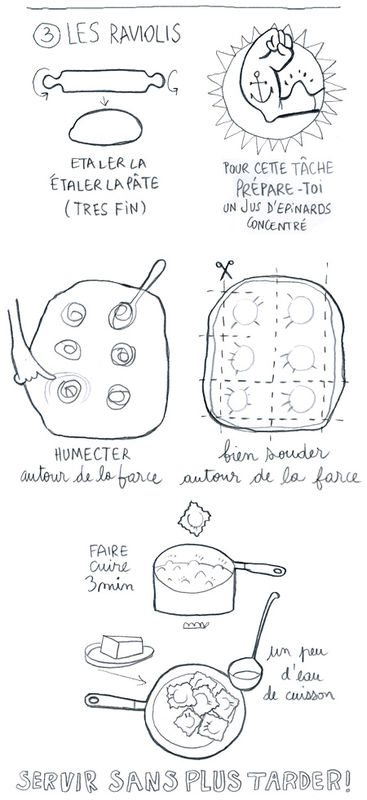 3 LES RAVIOLIS
ETALER LA
ÉTALER LA PÂTE
(TRES FIN)
POUR CETTE TÂCHE
PRÉPARE-TOI
UN JUS D'EPINARDS
CONCENTRÉ
HUMECTER
autour de la farce
bien souder
autour de la farce
FAIRE
cuire
3 min
un peu
d'eau
de cuisson
SERVIR SANS PLUS TARDER!